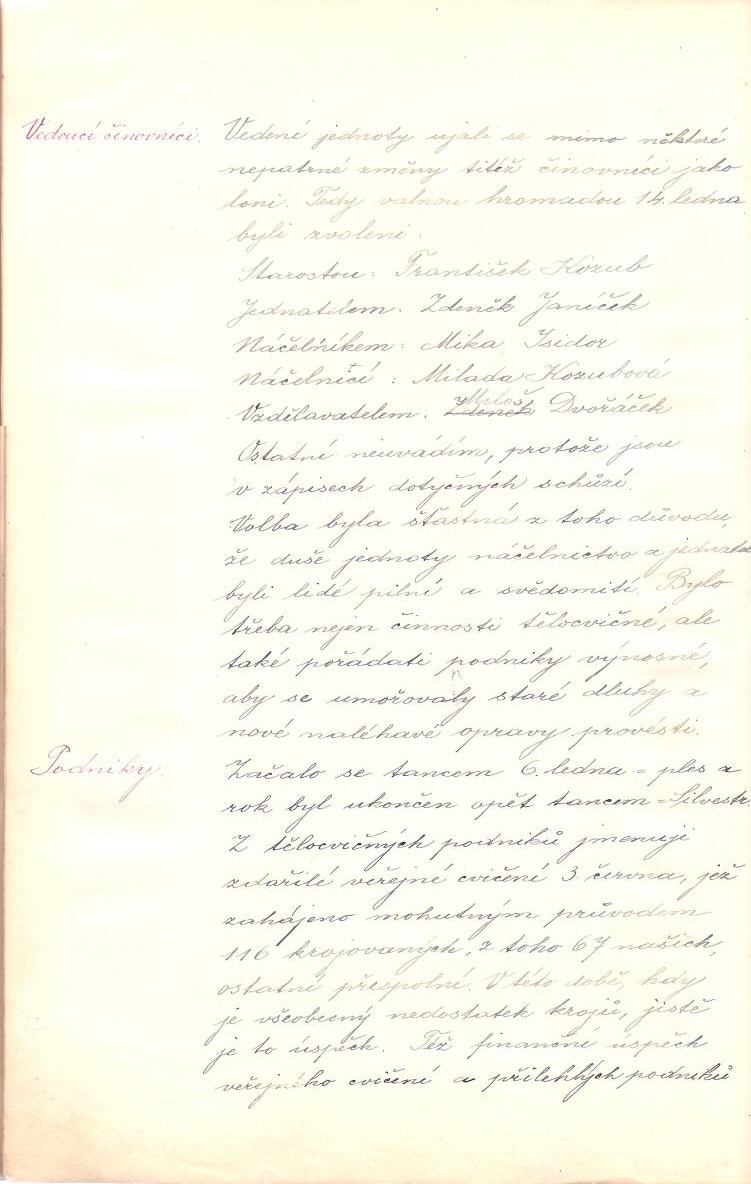 Vedoucí činovníci.
Vedení jednoty ujali se mimo některé
nepatrné změny titéž činovníci jako
loni. Tedy valnou hromadou 14. ledna
byli zvoleni:
Starostou: František Kozub
Jednatelem: Zdeněk Janíček
Náčelníkem: Mika Isidor
Náčelnicí: Milada Kozubová
Miloš
Vzdělavatelem. Zdeněk Dvořáček
Ostatní neuvádím, protože jsou
v zápisech dotyčných schůzí.
Volba byla šťastná z toho důvodu,
že duše jednoty náčelnictvo a
byli lidé pilní a svědomití. Bylo
třeba nejen činnosti tělocvičné, ale
také pořádati podniky výnosné,
aby se umořovaly staré dluhy a
nové naléhavé opravy provésti.
Podniky.
Začalo se tancem 6. ledna = ples a
rok byl ukončen opět tancem = Silvestr.
Z tělocvičných podniků jmenuji
zdařilé veřejné cvičení 3. června, jež
zahájeno mohutným průvodem
116 krojovaných, z toho 67 našich,
ostatní přespolní. V této době, kdy
je všeobecný nedostatek krojů, jistě
je to úspěch. Též finanční úspěch
veřejného cvičení a přilehlých podniků